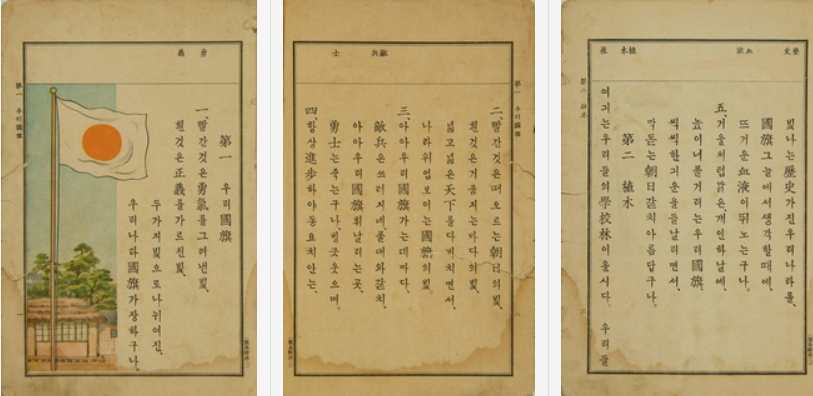 勇 義
第一 우리國旗
第一 우리國旗
一、빨간것은勇氣를그려낸빛、
흰것은正義를가르신빛、
두가지빛으로나뉘여진、
우리나라國旗가장하구나。
敵兵 士
第一 우리國旗
二、빨간것은떠오르는朝日의빛、
흰것은거품지는바다의빛、
넓고넓은天下를다비치면서、
나라위엄보이는國旗의빛。
三、아아우리國旗가는데마다、
敵兵은쓰러지네、풀대와갈치、
아아우리國旗휘날리는곳、
勇士는죽는구나、벙긋웃으며。
四、항상進步하야동요치안는、
歷史 血液 植木 林
빛나는歷史가진우리나라를、
國旗그늘에서생각할때에、
뜨거운血液이뛰노는구나。
五、거울처럼맑은、개인하날에、
높이너풀거리는우리國旗、
씩씩한기운을들날리면서、
막돋는朝日갈치아름답구나。
第二 植木
여긔는우리들의學校林이올시다。 우리들
第二 植木